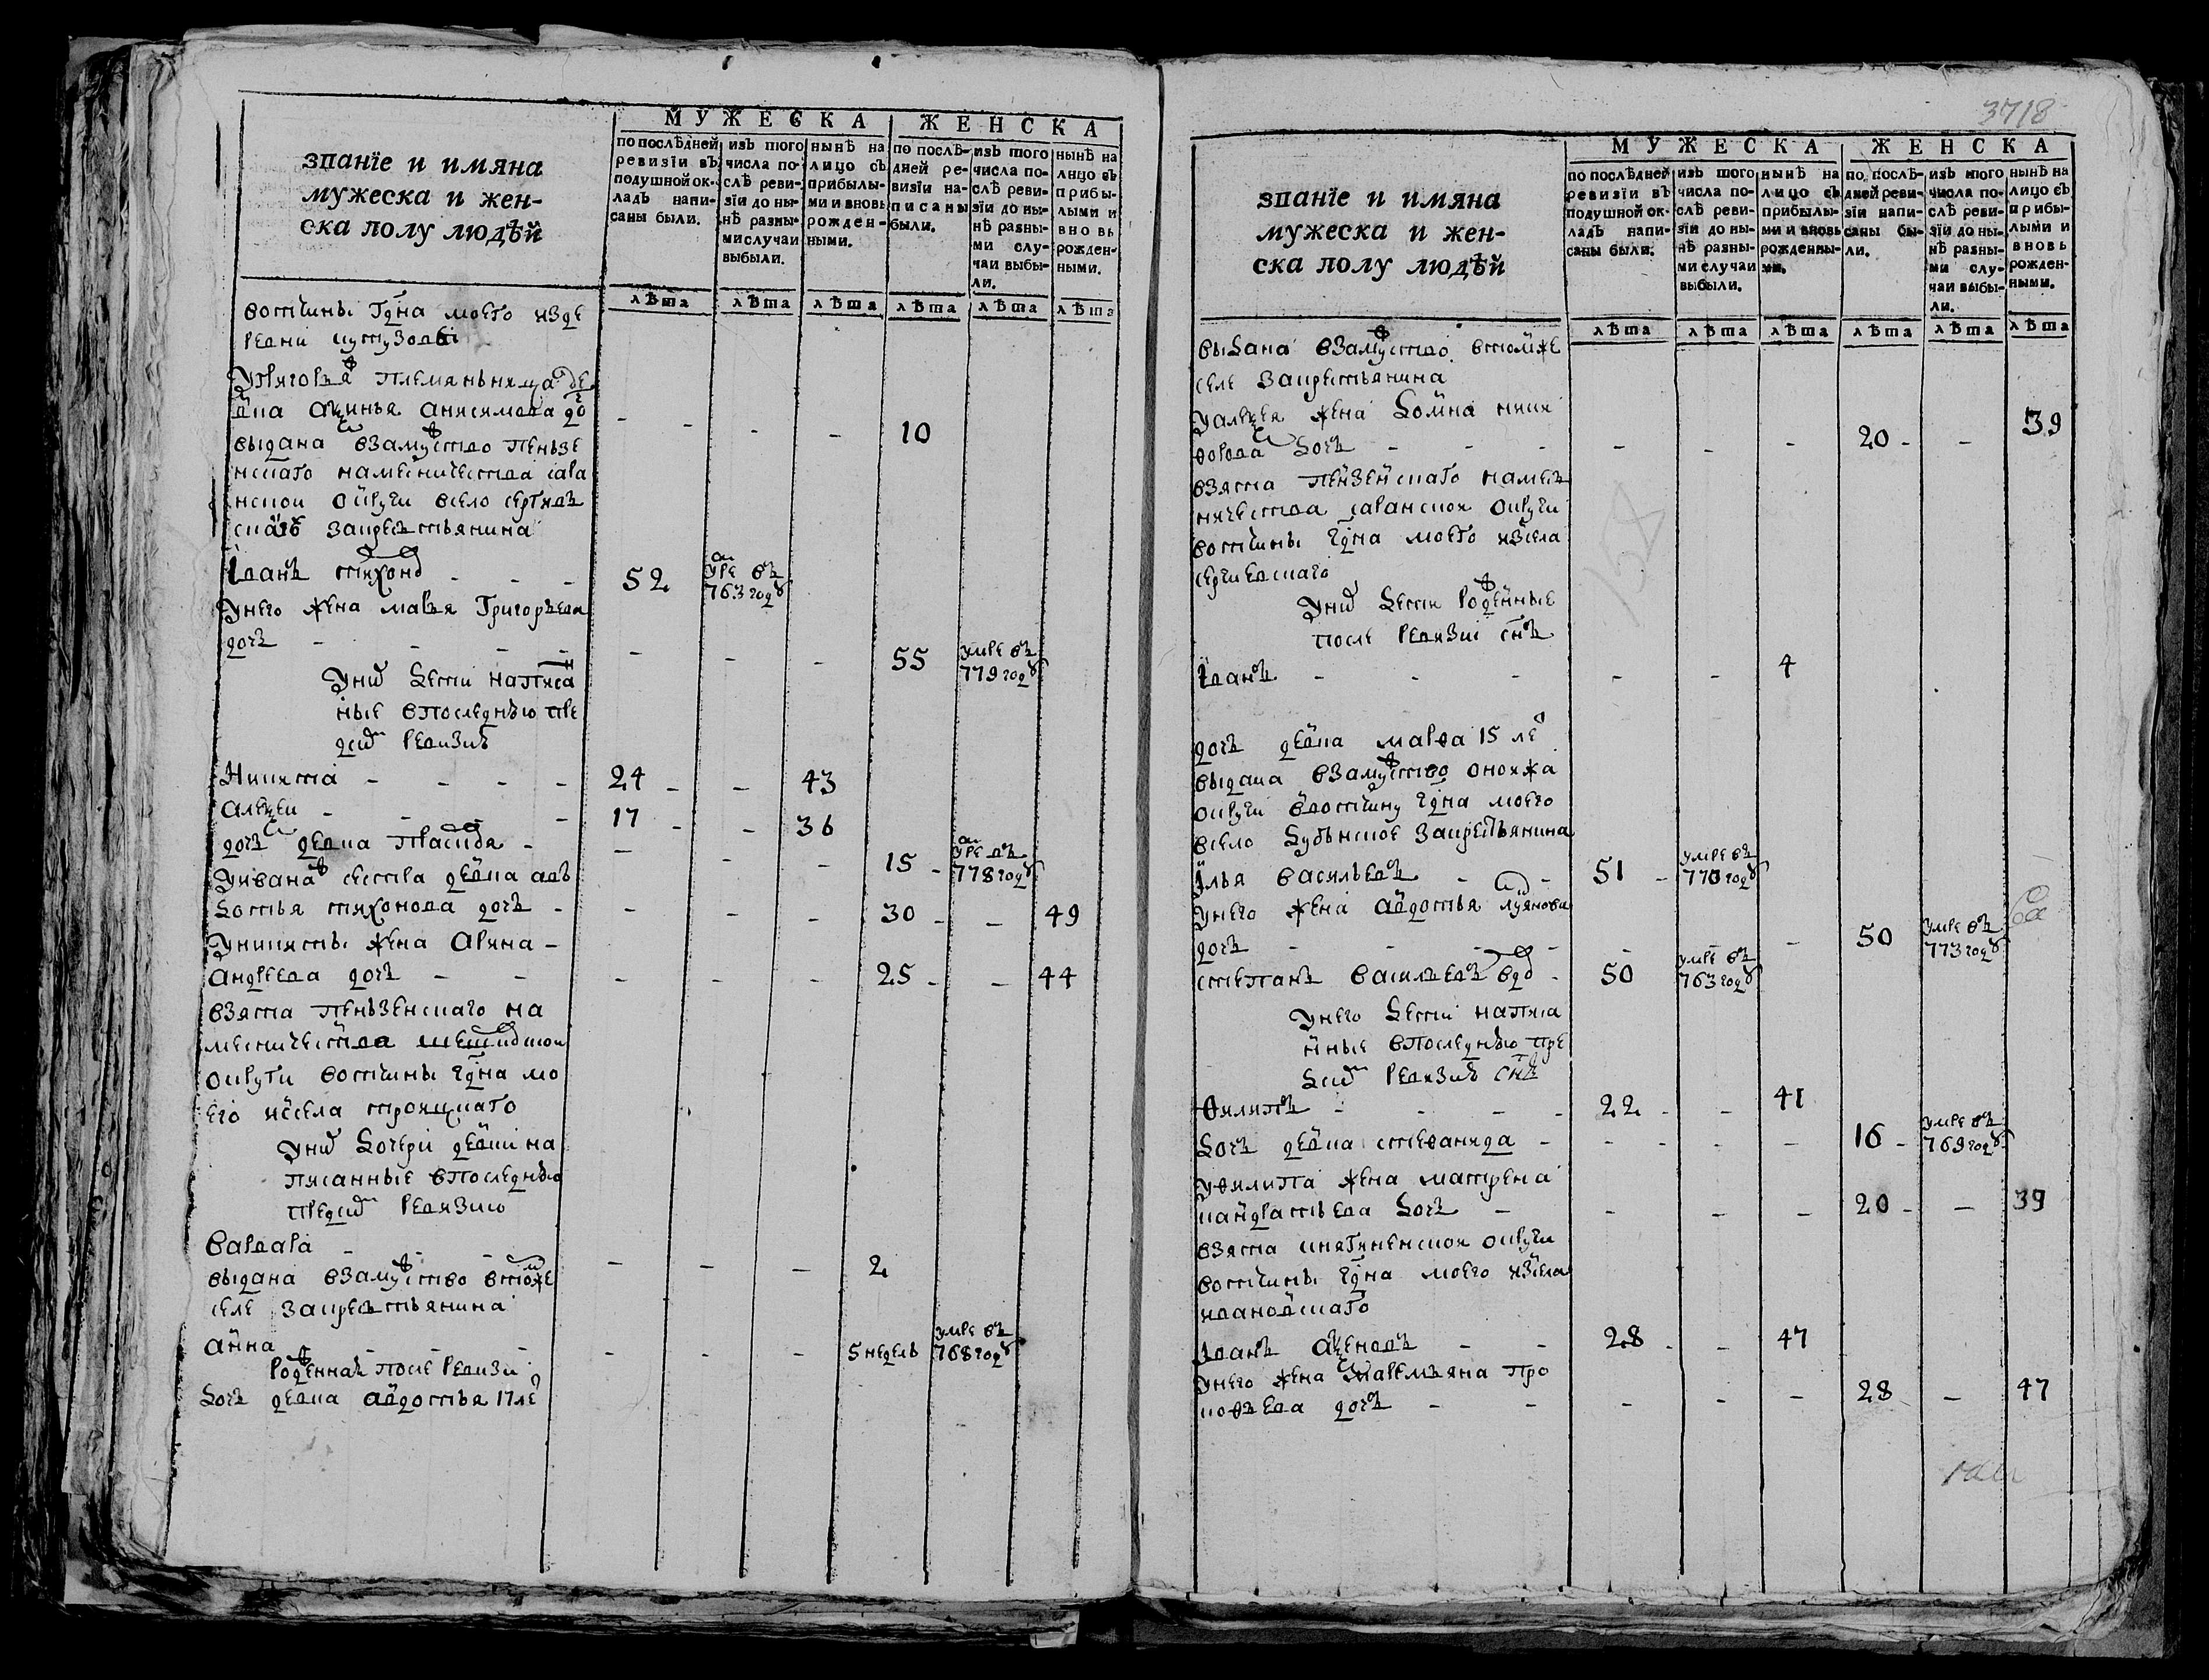 МУЖЕСКА ЖЕНСКА
званїе и имяна мужеска и женска полу людѣй
по послѣдней ревизїи въ подушной окладъ написаны были.
изъ того числа послѣ ревизїи до нынѣ разными случаи выбыли.
нынѣ на лицо съ прибылыми и вновь рожденными.
по послѣдней ревизїи написаны были.
изъ того числа послѣ ревизїи до нынѣ разными случаи выбыли.
нынѣ на лицо съ прибылыми и вновь рожденными.
лѣта лѣта лѣта лѣта лѣта лѣта
вотчины гдна моего изде
ревни
племяньница де
вка аксинья анисимова до 10
выдана взамужство пеньзе
нскаго наместничества сара
нскои округи всело
закрестьянина
Іванъ тихонов 52 умре въ 763 году
Унего жена марья Григорьева
дочь 55 умре въ 779 году
Уних дети написа
ные впоследнюю пре
дсим ревизию
Никита 24 43
алексеи 17 36
дочь девка 15 умре въ 778 году
Уивана сестра девка авъ
дотья тихонова дочь 30 49
Уникиты жена арина
андреева дочь 25 44
взята пеньзенскаго на
местничества
округи вотчины гдна мо
его исела троицкаго
Уних дочери девки на
писанные впоследнюю
предсим ревизию
варвара 2
выдана взамужство втомже
селе закрестьянина
анна 5 недель умре въ 768 году
рожденная после ревизи
дочь девка авдотья 17 ле
3718
МУЖЕСКА ЖЕНСКА
званїе и имяна мужеска и женска полу людѣй
по послѣдней ревизїи въ подушной окладъ написаны были.
изъ того числа послѣ ревизїи до нынѣ разными случаи выбыли.
нынѣ на лицо съ прибылыми и вновь рожденными.
по послѣдней ревизїи написаны были.
изъ того числа послѣ ревизїи до нынѣ разными случаи выбыли.
нынѣ на лицо съ прибылыми и вновь рожденными.
лѣта лѣта лѣта лѣта лѣта лѣта
выдана взамужство втомже
селе закрестьянина
Уалексея жена домна ники
форова дочь 20 39
взята пензенскаго намест
ничества саранскои округи
вотчины гдна моего изсела
сергиевскаго
Уних дети рожденные
после ревизи снъ
Іванъ 4
дочь девка марфа 15 ле
выдана взамужство оноижа
округи ввотчину гдна моего
всело закрестьянина
Илья васильевъ 51 умре въ 770 году
Унего жена авдотья лукянова
дочь 50 умре въ 773 году
степанъ васильевъ вдов 50 умре въ 763 году
Унего дети написа
нные впоследнюю пре
дсим ревизию снъ
Филипъ 22 41
дочь девка стефанида 16 умре въ 769 году
Уфилипа жена матрена
кандратьева дочь 20 39
взята округи
вотчины гдна моего изсела
ивановскаго
Іванъ аксеновъ 28 47
Унего жена маремьяна про
кофьева дочь 28 47